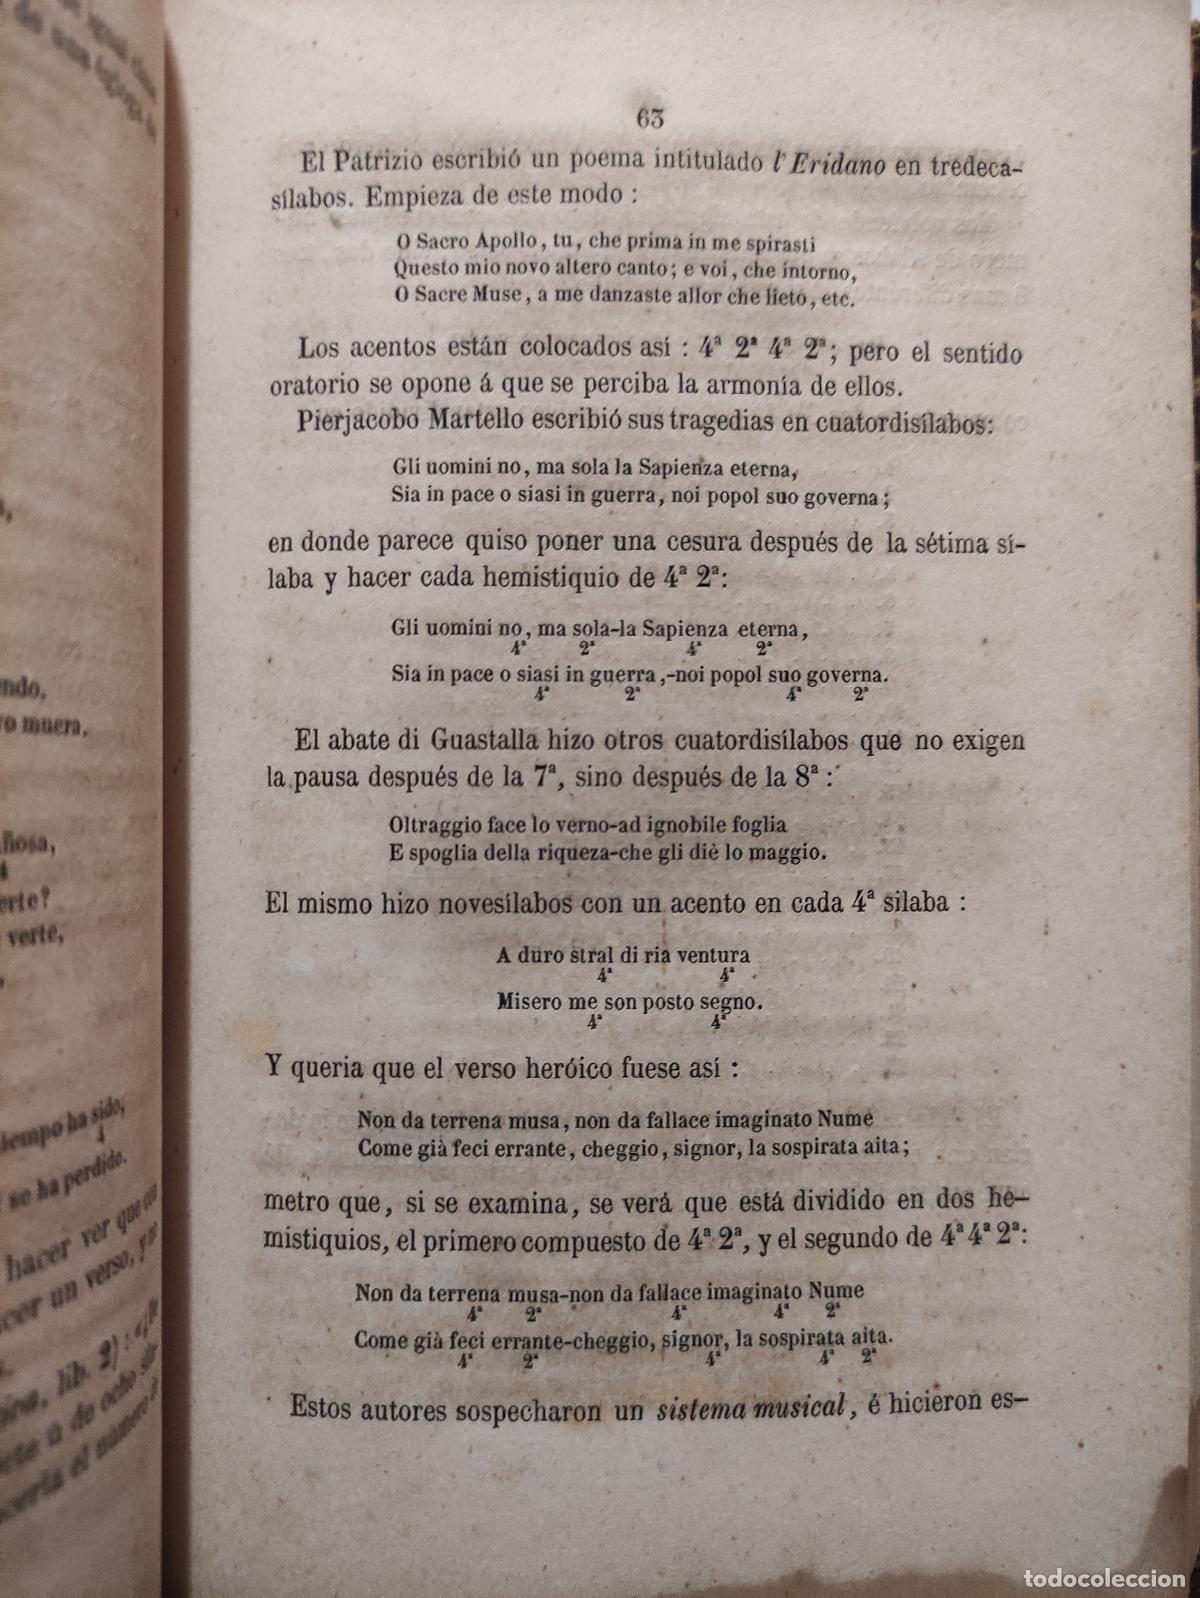 63
El Patrizio escribió un poema intitulado l'Eridano en tredeca-
sílabos. Empieza de este modo :
O Sacro Apollo, tu, che prima in me spirasti
Questo mio novo altero canto; e voi, che intorno,
O Sacre Muse, a me danzaste allor che lieto, etc.
Los acentos están colocados así : 4ª 2ª 4ª 2ª; pero el sentido
oratorio se opone á que se perciba la armonía de ellos.
Pierjacobo Martello escribió sus tragedias en cuatordisílabos:
Gli uomini no, ma sola la Sapienza eterna,
Sia in pace o siasi in guerra, noi popol suo governa;
en donde parece quiso poner una cesura después de la sétima sí-
laba y hacer cada hemistiquio de 4ª 2ª:
Gli uomini no, ma sola-la Sapienza eterna,
4ª 2ª 4ª 2ª
Sia in pace o siasi in guerra,-noi popol suo governa.
4ª 2ª 4ª 2ª
El abate di Guastalla hizo otros cuatordisílabos que no exigen
la pausa después de la 7ª, sino después de la 8ª :
Oltraggio face lo verno-ad ignobile foglia
E spoglia della riqueza-che gli diè lo maggio.
El mismo hizo novesílabos con un acento en cada 4ª silaba :
A duro stral di ria ventura
4ª 4ª
Misero me son posto segno.
4ª 4ª
Y queria que el verso heróico fuese así :
Non da terrena musa, non da fallace imaginato Nume
Come già feci errante, cheggio, signor, la sospirata aita;
metro que, si se examina, se verá que está dividido en dos he-
mistiquios, el primero compuesto de 4ª 2ª, y el segundo de 4ª 4ª 2ª:
Non da terrena musa-non da fallace imaginato Nume
4ª 2ª 4ª 4ª 2ª
Come già feci errante-cheggio, signor, la sospirata aita.
4ª 2ª 4ª 4ª 2ª
Estos autores sospecharon un sistema musical, é hicieron es-
ro muera.
verte,
tiempo ha sido,
4
se ha perdido.
hacer ver que
un verso,
lib. 2) :
de ocho
el número
todocoleccion